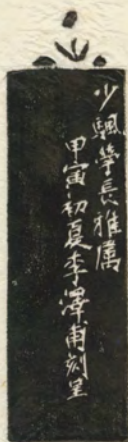 少颿學長雅属
甲寅初夏李澤甫刻呈